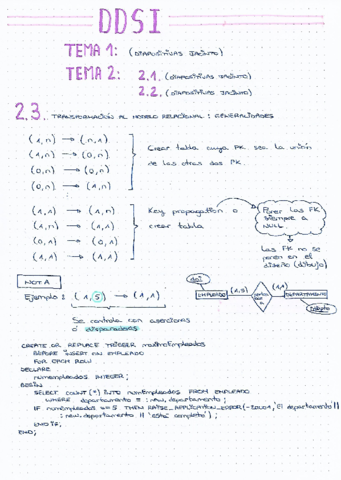 DDSI
TEMA 1: (DIAPOSITIVAS JACINTO)
TEMA 2: 2.1. (DIAPOSITIVAS JACINTO)
2.2. (DIAPOSITIVAS JACINTO)
2.3. TRANSFORMACIÓN AL MODELO RELACIONAL: GENERALIDADES
(1,n) → (n,1)
(1,n) → (0,n)
(0,n) → (0,n)
(0,n) → (1,n)
Crear tabla cuya PK sea la unión
de las otras dos PK.
(1,1) → (1,n)
(1,1) → (0,n)
(0,1) → (0,1)
(1,1) → (1,1)
Key propagation o
crear tabla
Poner las FK
siempre a
NULL.
Las FK no se
ponen en el
diseño (dibujo)
NOTA
Ejemplo: (1,5) → (1,1)
Se controla con aserciones
o disparadores
EMPLEADO (1,5) (1,1) DEPARTAMENTO
CREATE OR REPLACE TRIGGER
BEFORE INSERT ON EMPLEADO
FOR EACH ROW
DECLARE
numempleados INTEGER;
BEGIN
SELECT COUNT(*) INTO numEmpleados FROM EMPLEADO
WHERE departamento = :new.departamento;
IF numEmpleados >= 5 THEN RAISE_APPLICATION_ERROR(-20001,'El departamento'||
:new.departamento || 'está completo');
END IF;
END;